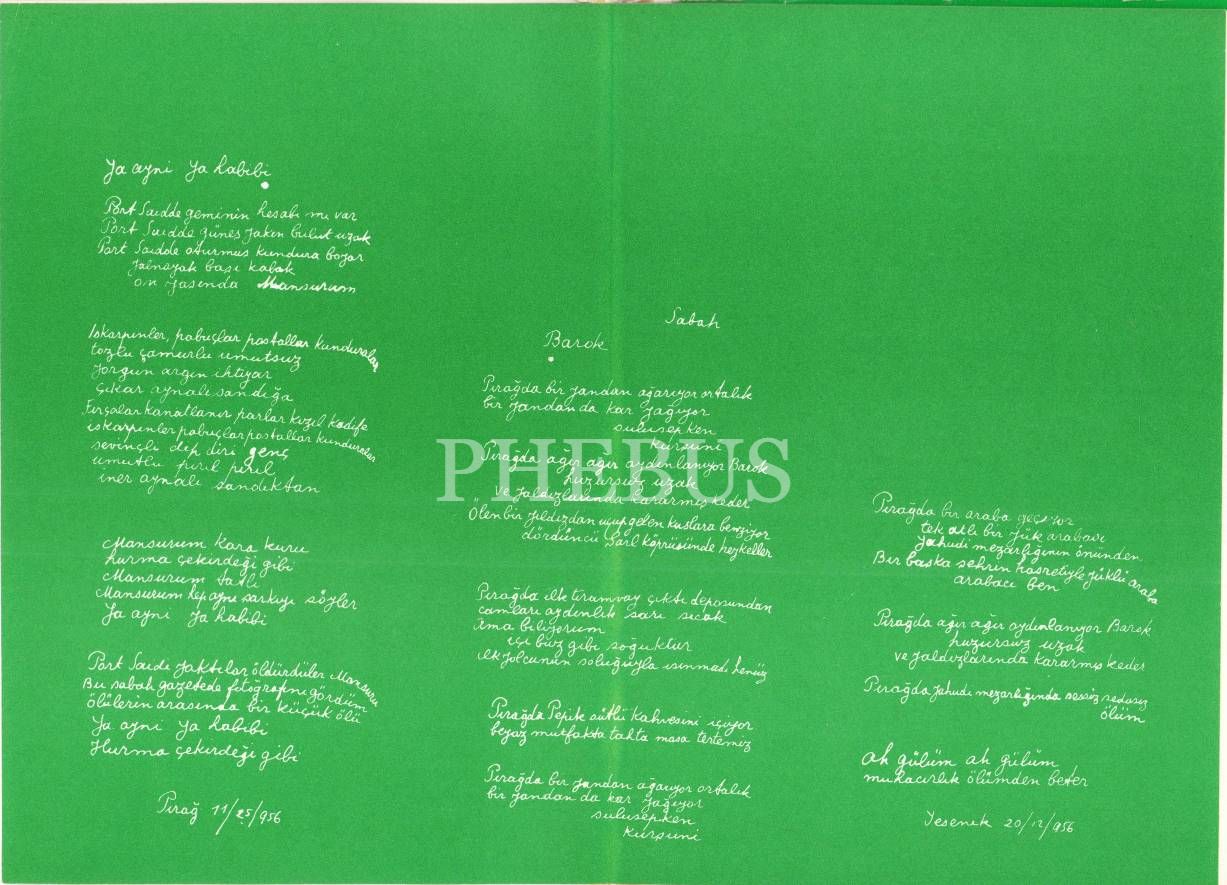 Ya ayni Ya habibi
Port Saidde geminin hesabı mı var
Port Saidde güneş yakın bulut uzak
Port Saidde oturmuş kundura boyar
yalnayak başı kabak
on yaşında Mansurum
Iskarpinler, pabuçlar postallar kunduralar
tozlu çamurlu umutsuz
yorgun argın ihtiyar
çıkar aynalı sandığa
Fırçalar kanatlanır parlar kızıl kadife
iskarpinler pabuçlar postallar kunduralar
sevinçli dep diri genç
umutlu pırıl pırıl
iner aynalı sandıktan
Mansurum kara kuru
hurma çekirdeği gibi
Mansurum tatlı
Mansurum hep aynı şarkıyı söyler
Ya ayni ya habibi
Port Saidi yaktılar öldürdüler Mansuru
Bu sabah gazetede fotoğrafını gördüm
ölülerin arasında bir küçük ölü
Ya ayni ya habibi
Hurma çekirdeği gibi
Pırağ 11/25/956
Sabah
Barok
Pırağda bir yandan ağarıyor ortalık
bir yandan da kar yağıyor
sulusepken
kurşuni
Pırağda ağır ağır aydınlanıyor Barok
huzursuz uzak
ve yaldızlarında kararmış keder
Ölen bir yıldızdan uçup gelen kuşlara benziyor
dördüncü Şarl köprüsünde heykeller
Pırağda ilk tıramvay çıktı deposundan
camları aydınlık sarı sıcak
Ama biliyorum
içi buz gibi soğuktur
ilk yolcunun soluğuyla ısınmadı henüz
Pırağda Pepik sütlü kahvesini içiyor
beyaz mutfakta tahta masa tertemiz
Pırağda bir yandan ağarıyor ortalık
bir yandan da kar yağıyor
sulusepken
kurşuni
Pırağda bir araba geçiyor
tek atlı bir yük arabası
Yahudi mezarlığının önünden
Bir başka şehrin hasretiyle yüklü araba
arabacı ben
Pırağda ağır ağır aydınlanıyor Barok
huzursuz uzak
ve yaldızlarında kararmış keder
Pırağda Yahudi mezarlığında sessiz sedasız
ölüm
ah gülüm ah gülüm
muhacirlik ölümden beter
Yesenik 20/12/956
PHEBUS